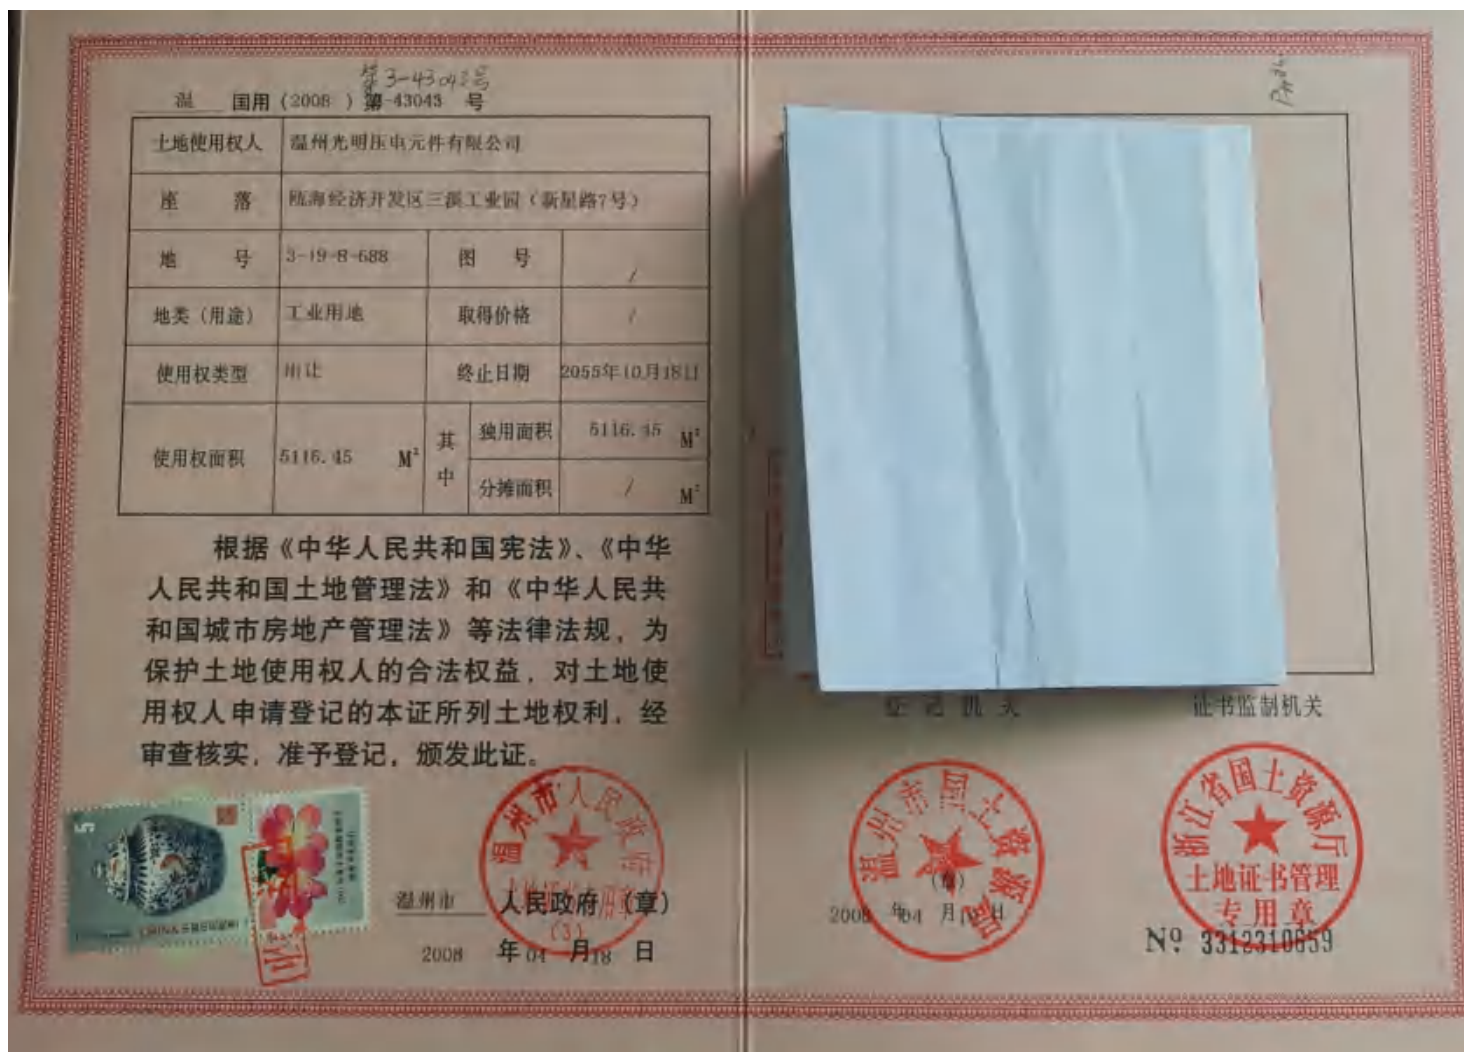 第3-43043号
温 国用 (2008 ) 第-43043 号
土地使用权人 温州光明压电元件有限公司
座 落 瓯海经济开发区三溪工业园(新星路7号)
地 号 3-19-8-688 图 号 /
地类 (用途) 工业用地 取得价格 /
使用权类型 出让 终止日期 2055年10月18日
使用权面积 5116.45 M² 其中 独用面积 5116.45 M²
分摊面积 / M²
根据《中华人民共和国宪法》、《中华
人民共和国土地管理法》和《中华人民共
和国城市房地产管理法》等法律法规，为
保护土地使用权人的合法权益，对土地使
用权人申请登记的本证所列土地权利，经
审查核实，准予登记，颁发此证。
温州市 人民政府 (章)
2008 年 04 月 18 日
温州市人民政府
(3)
5
登 记 机 关
证书监制机关
温州市国土资源局
(章)
2008 年 04 月 18 日
浙江省国土资源厅
土地证书管理
专用章
Nº 3312310659